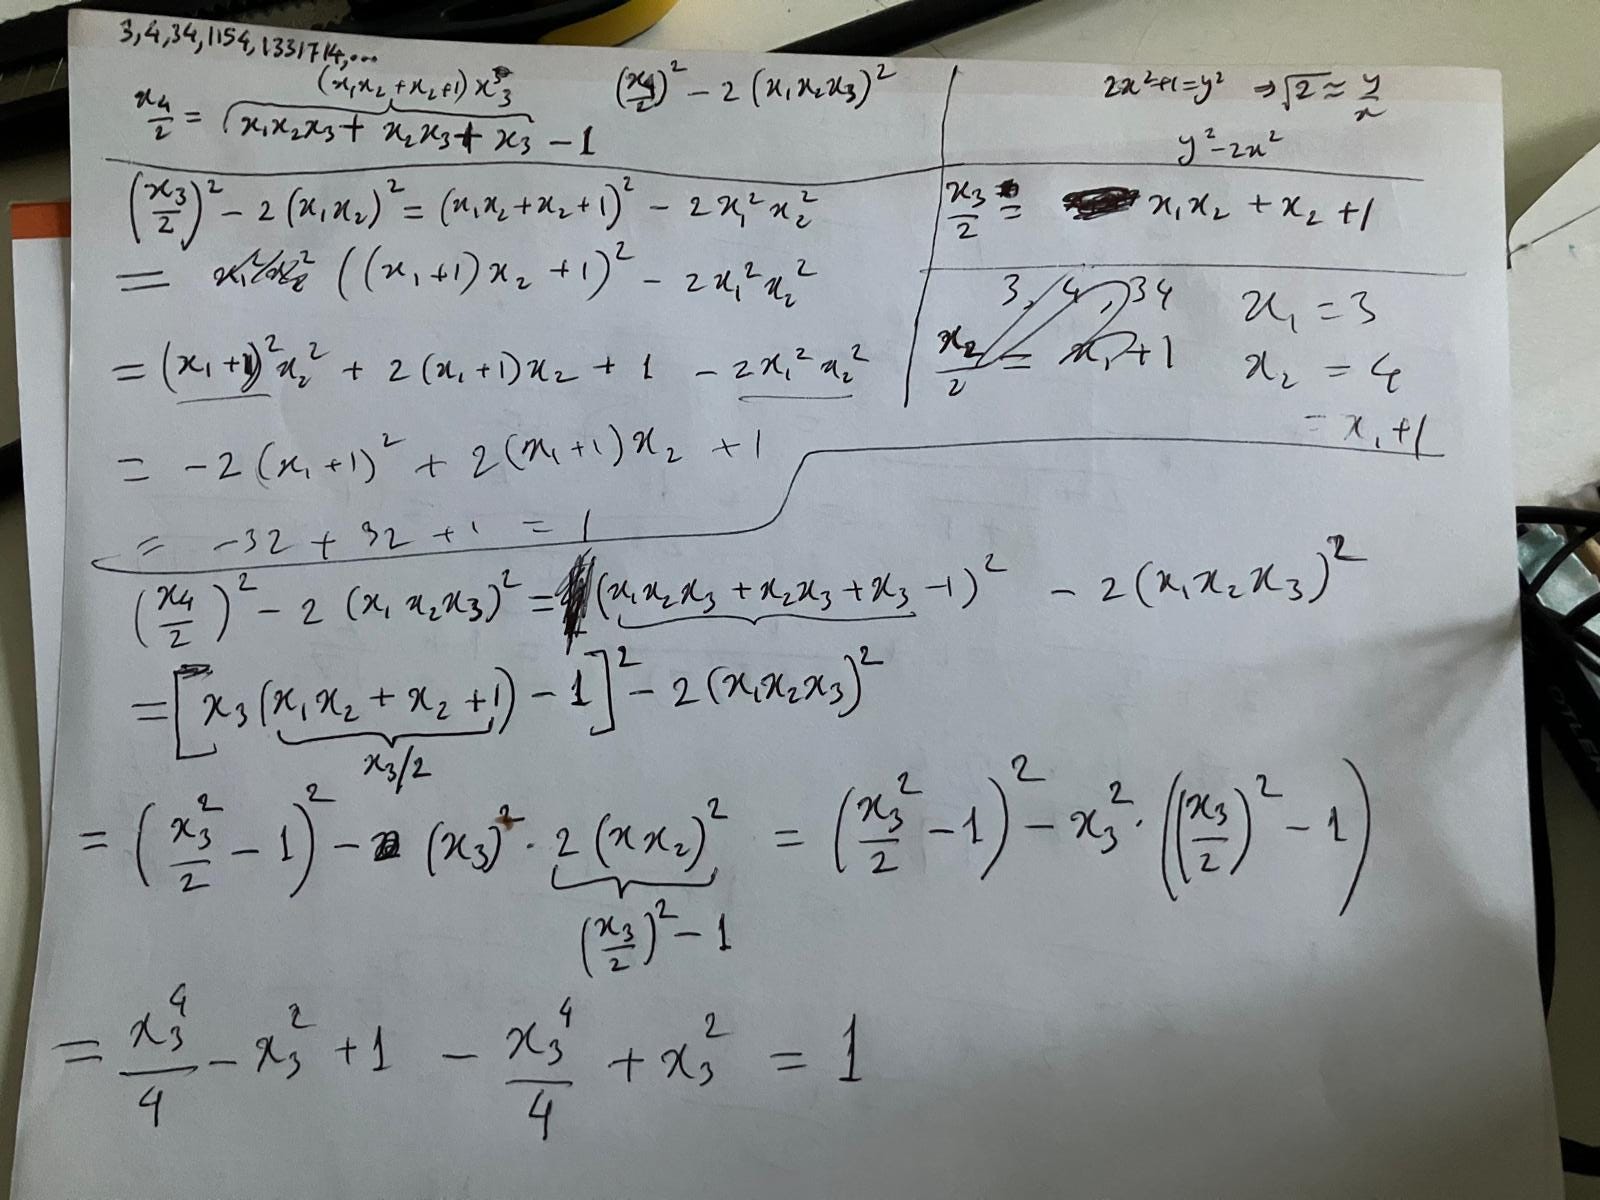 3,4,34,1154,1331714,...
x₄/2 = x₁x₂x₃ + x₂x₃ + x₃ − 1
(x₁x₂+x₂+1) x₃
(x₄/2)² − 2 (x₁x₂x₃)²
2x²+1=y² ⇒ √2 ≈ y/x
y²−2x²
(x₃/2)² − 2(x₁x₂)² = (x₁x₂+x₂+1)² − 2x₁²x₂²
= ((x₁+1)x₂ +1)² − 2x₁²x₂²
= (x₁+1)²x₂² + 2(x₁+1)x₂ + 1 − 2x₁²x₂²
= −2(x₁+1)² + 2(x₁+1)x₂ + 1
= −32 + 32 + 1 = 1
x₃/2 = x₁x₂ + x₂ + 1
3, 4, 34
x₂/2 = x₁+1
x₁ = 3
x₂ = 4
= x₁+1
(x₄/2)² − 2 (x₁x₂x₃)² = (x₁x₂x₃ + x₂x₃ + x₃ − 1)² − 2(x₁x₂x₃)²
= [x₃(x₁x₂ + x₂ + 1) − 1]² − 2(x₁x₂x₃)²
x₃/2
= (x₃²/2 − 1)² − (x₃)² · 2(xx₂)² = (x₃²/2 − 1)² − x₃² · ((x₃/2)² − 1)
(x₃/2)² − 1
= x₃⁴/4 − x₃² + 1 − x₃⁴/4 + x₃² = 1